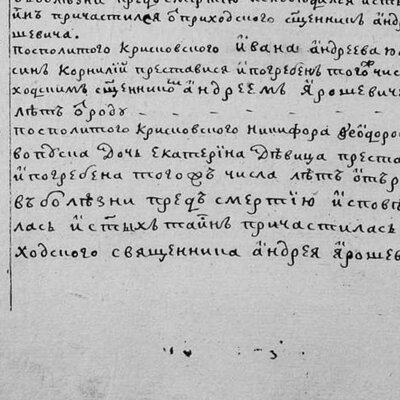 въ болѣзни предъ смертию исповѣдался и ст
инъ причастился ѿ приходского сщенника андр
шевича.
посполитого Крисковского ивана андреева ю
синъ Корнилий преставися и погребенъ того числ
ходскимъ сщенникомъ андреемъ Ярошевиче
лѣтъ ѿ роду
посполитого Крисковского Никифора Ѳеодоров
вопуcна Дочь Екатерина Дѣвица преста
и погребена того жъ числа лѣтъ ѿтъ р
въ болѣзни предъ смертию исповѣ
лась и стыхъ таинъ причастилась
ходского священника андрея Ярошев